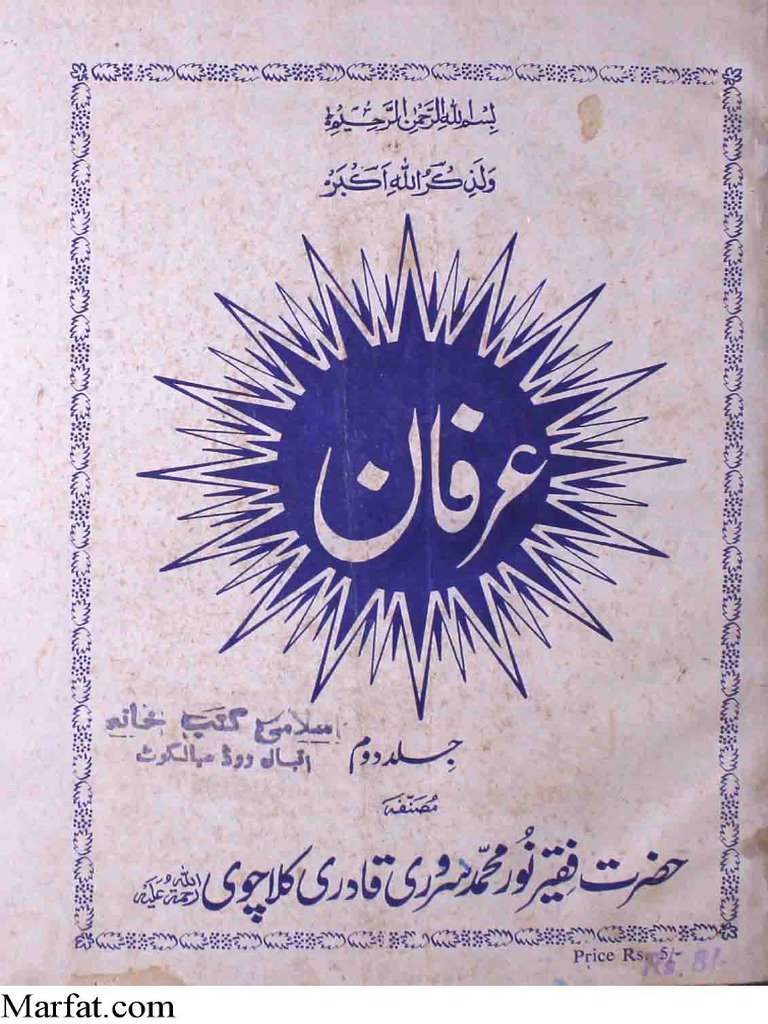 بِسْمِ اللهِ الرَّحْمٰنِ الرَّحِيْمِ
وَلَذِكْرُ اللهِ اَكْبَرُ
عرفان
اسلامی کتب خانہ
اقبال روڈ سیالکوٹ
جِلد دوم
مُصَنّفہ
حضرت فقیر نُور محمّد سروری قادری کلاچوی رحمۃ اللہ علیہ
Price Rs. 5/-
Rs. 8/-
Marfat.com